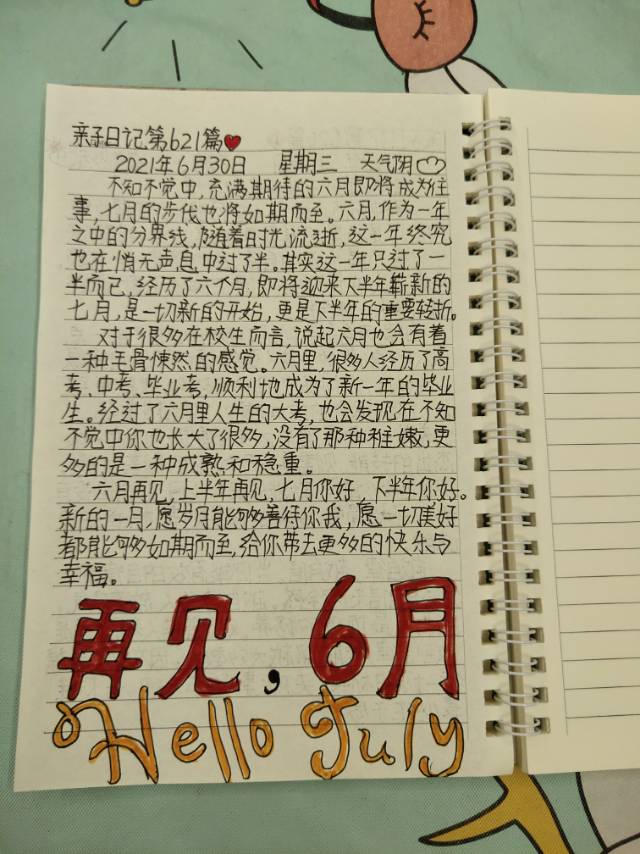 亲子日记第621篇
2021年6月30日 星期三 天气阴
不知不觉中,充满期待的六月即将成为往
事,七月的步伐也将如期而至。六月,作为一年
之中的分界线,随着时光流逝,这一年终究
也在悄无声息中过了半。其实这一年只过了一
半而已,经历了六个月,即将迎来下半年崭新的
七月,是一切新的开始,更是下半年的重要转折。
对于很多在校生而言,说起六月也会有着
一种毛骨悚然的感觉。六月里,很多人经历了高
考、中考、毕业考,顺利地成为了新一年的毕业
生。经过了六月里人生的大考,也会发现在不知
不觉中你也长大了很多,没有了那种稚嫩,更
多的是一种成熟和稳重。
六月再见,上半年再见,七月你好,下半年你好。
新的一月,愿岁月能够善待你我,愿一切美好
都能够如期而至,给你带去更多的快乐与
幸福。
再见,6月
Hello July